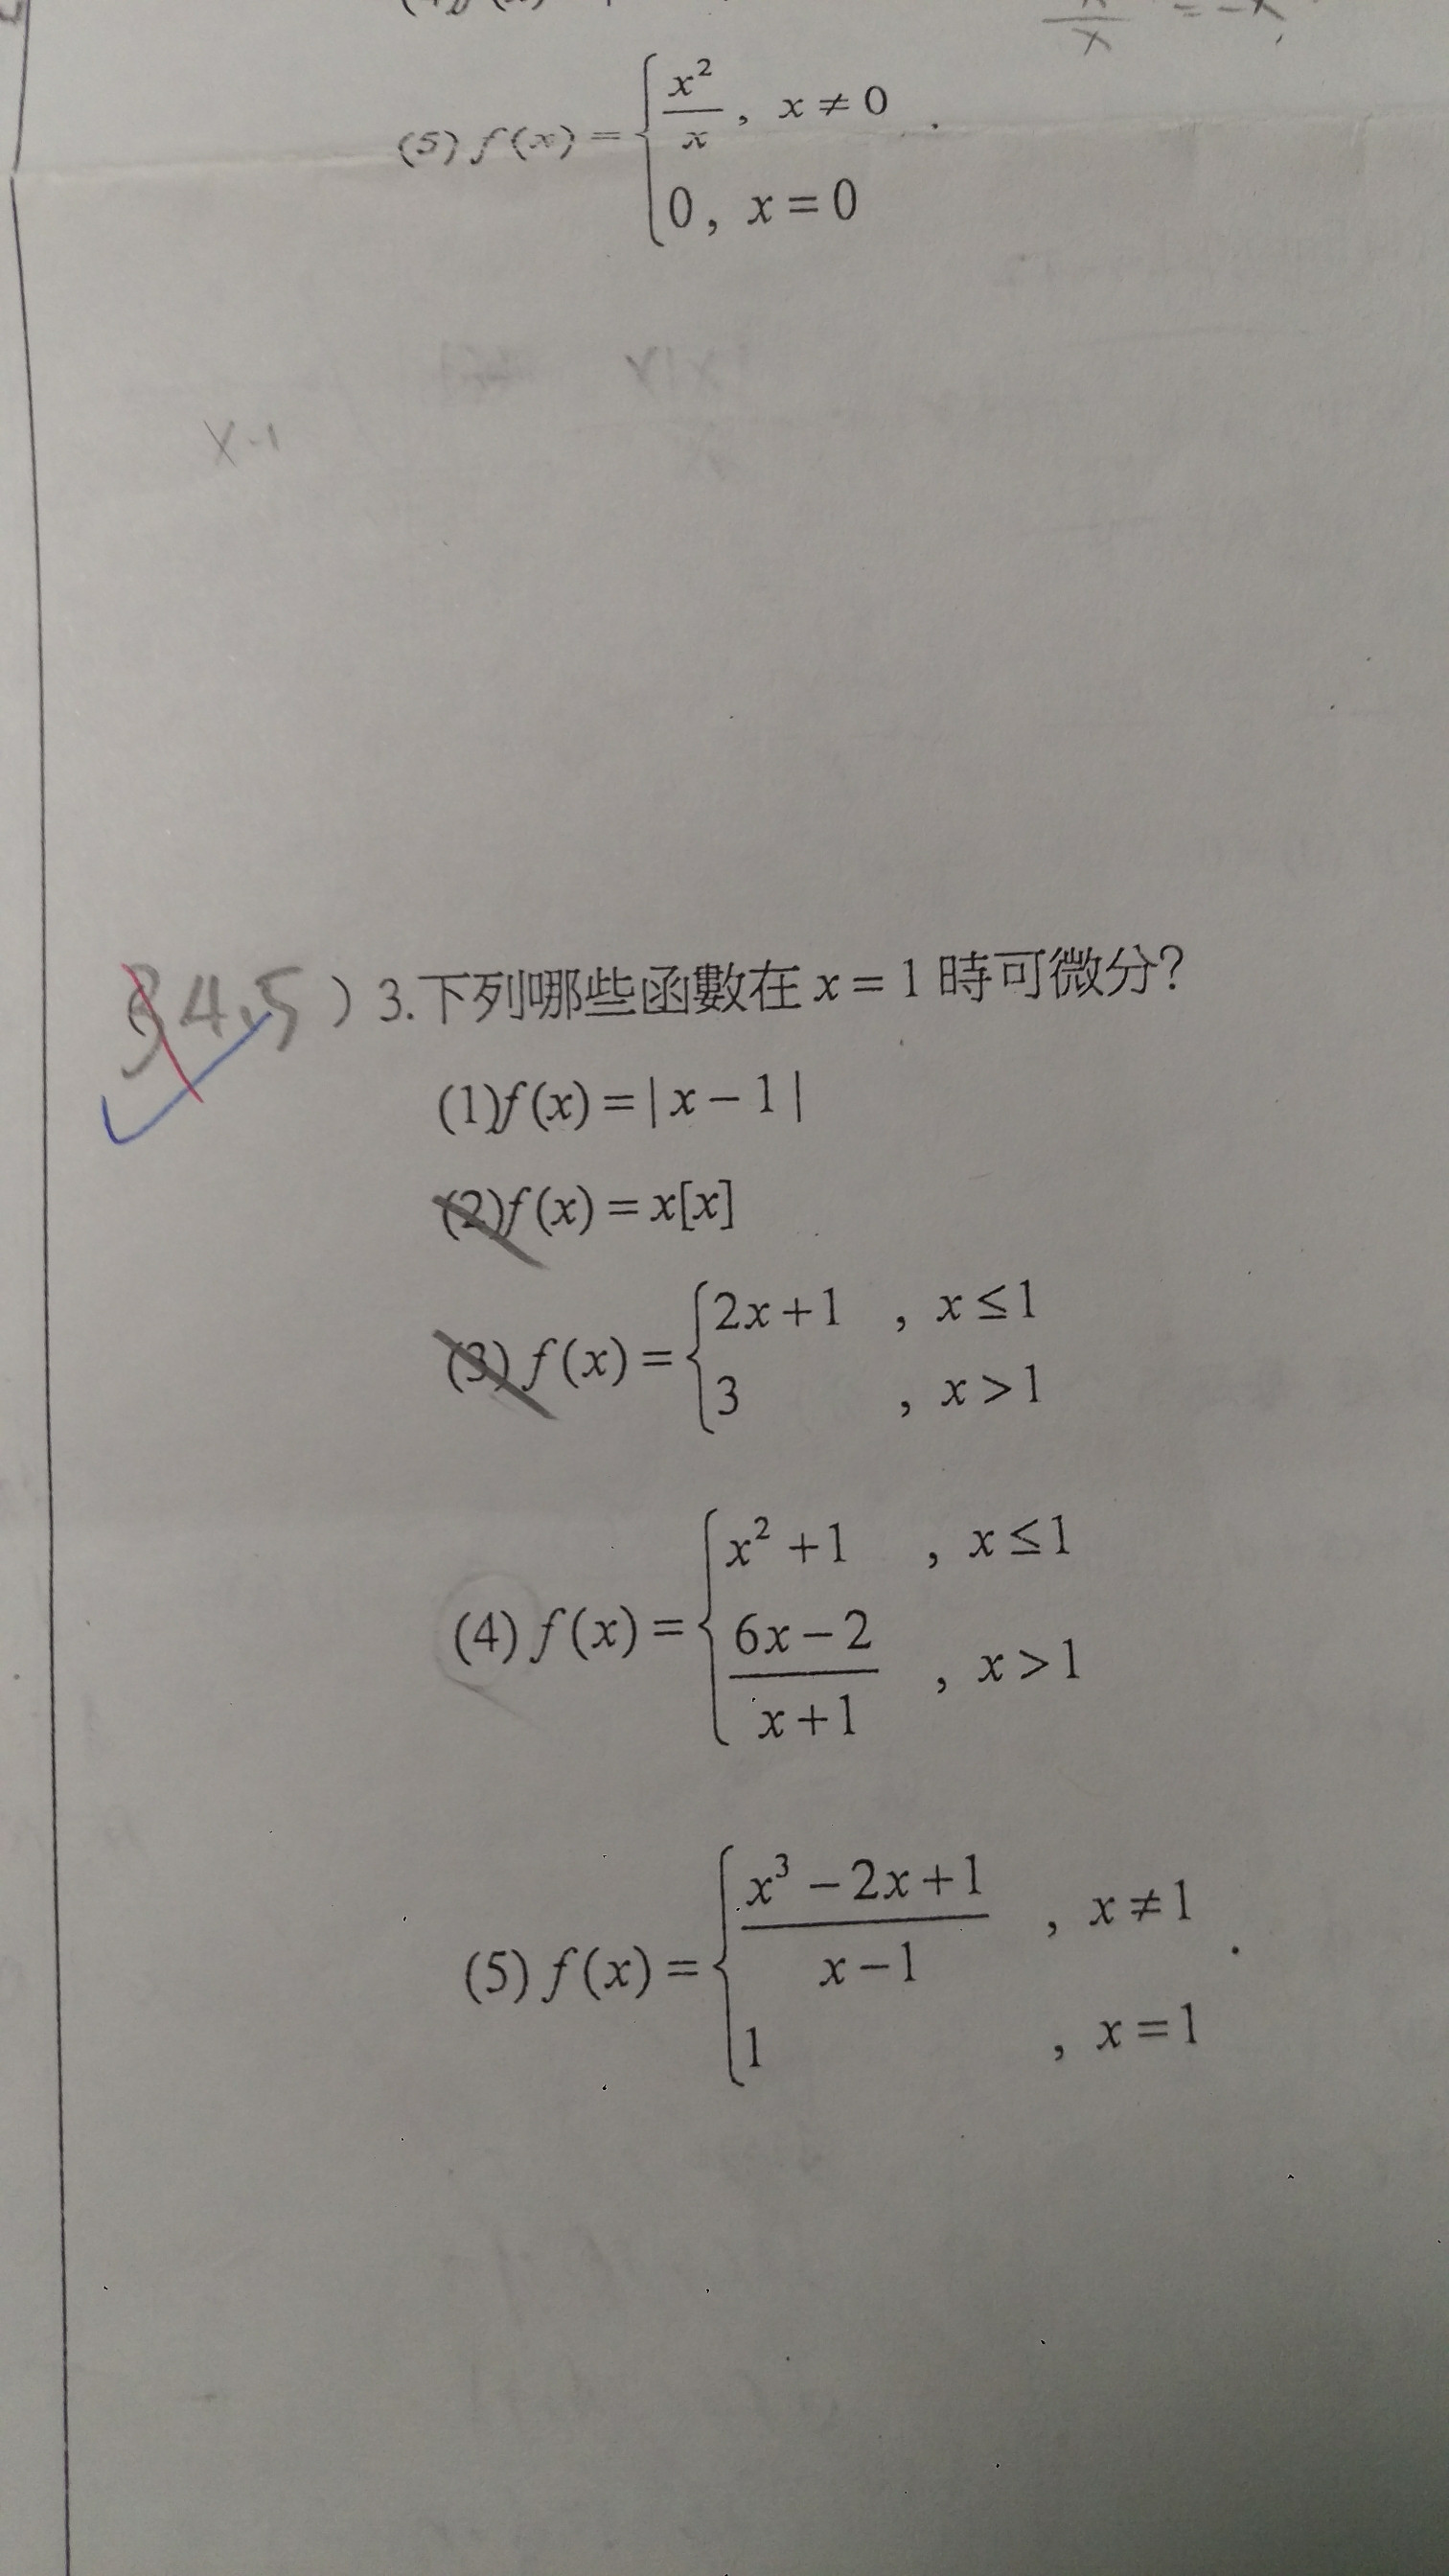 (5) f(x) = { x²/x , x ≠ 0
0 , x = 0
x-1
34,5 ) 3.下列哪些函數在 x = 1 時可微分?
(1)f(x) = | x − 1 |
(2)f(x) = x[x]
(3) f(x) = { 2x + 1 , x ≤ 1
3 , x > 1
(4) f(x) = { x² + 1 , x ≤ 1
6x − 2 / x + 1 , x > 1
(5) f(x) = { x³ − 2x + 1 / x − 1 , x ≠ 1 .
1 , x = 1